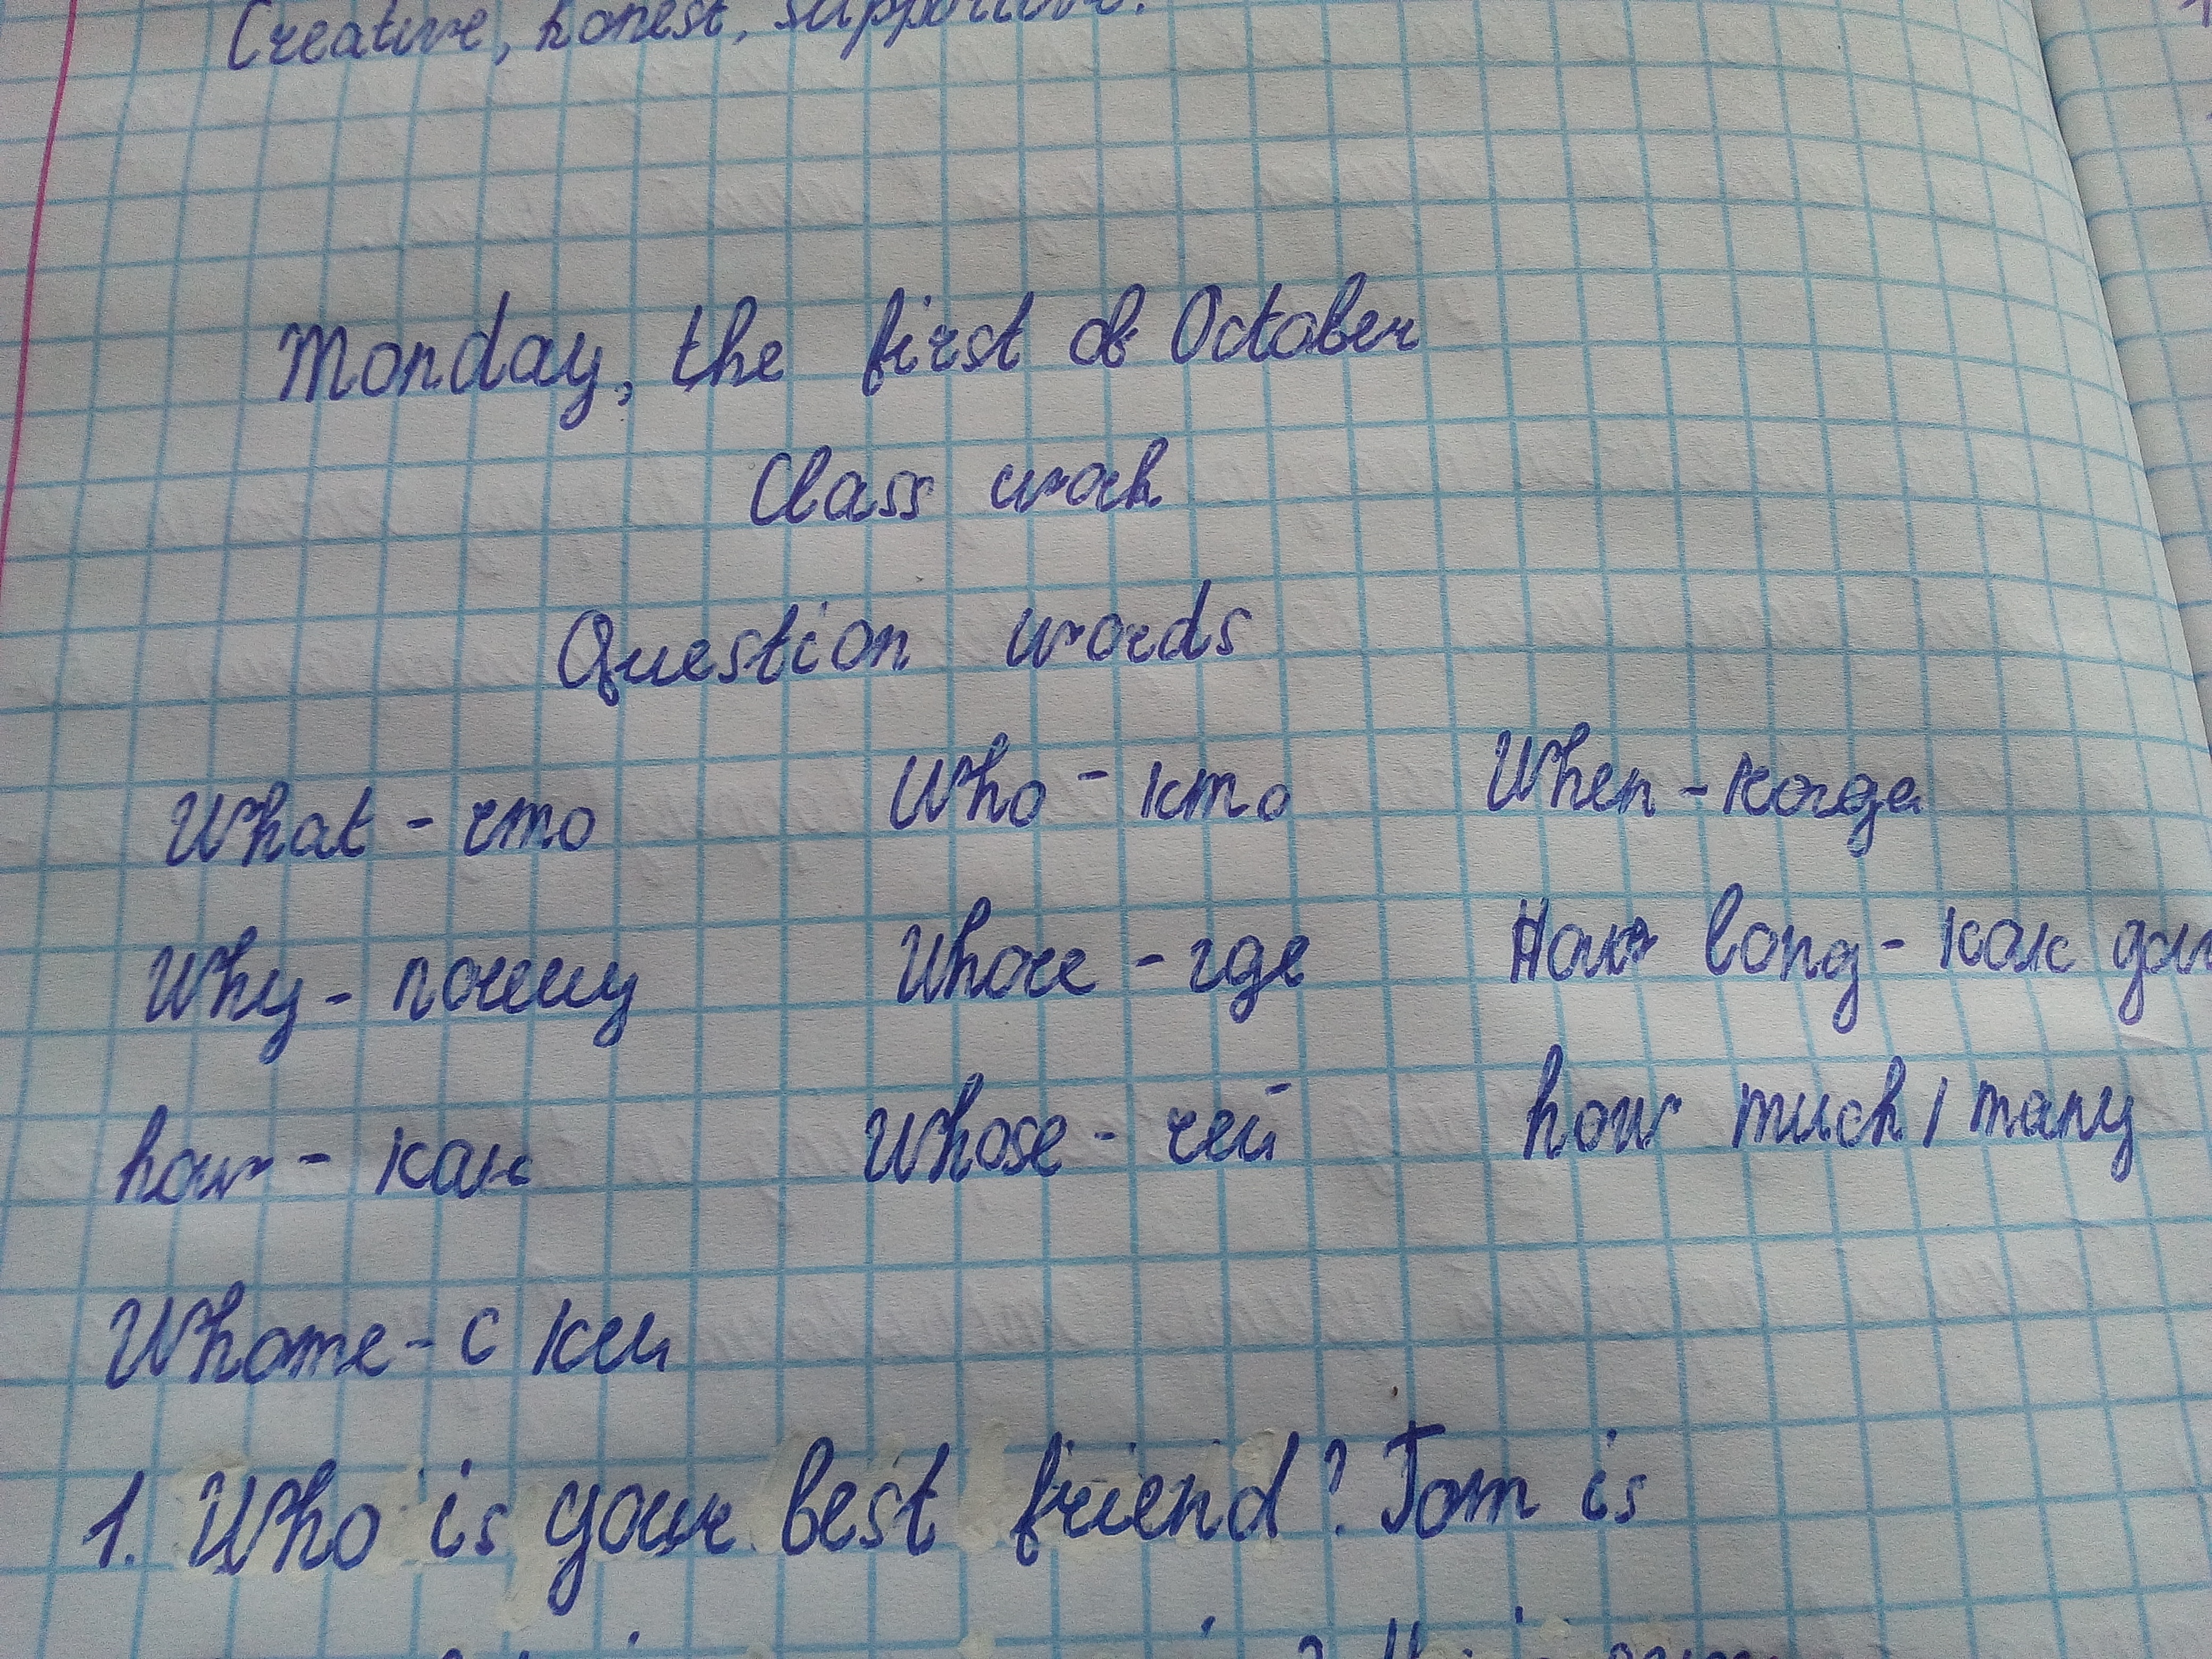 Creative, honest, supportive.
Monday, the first of October
Class work
Question words
What - что Who - кто When - когда
Why - почему Whore - где How long - как
how - как Whose - чей how much / many
Whome - с кем
1. Who is your best friend? Tom is